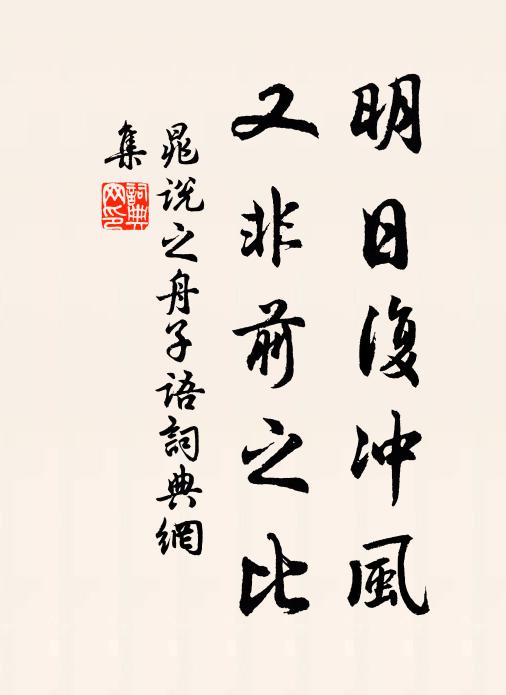 明日復冲風
又非前之比
晁說之舟子語詞典網
集
詞典
网印